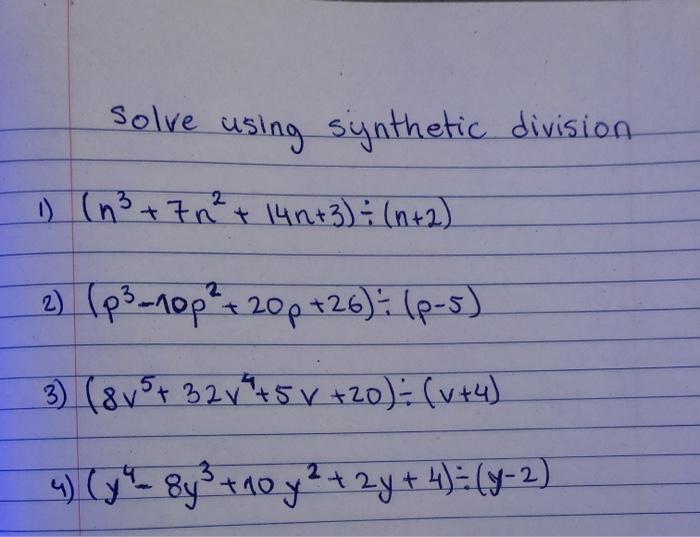 Solve using synthetic division
1) (n³ + 7n² + 14n+3) ÷ (n+2)
2) (p³-10p² + 20p +26) ÷ (p-5)
3) (8v⁵+ 32v⁴+5v +20) ÷ (v+4)
4) (y⁴- 8y³ +10y² + 2y + 4) ÷ (y-2)